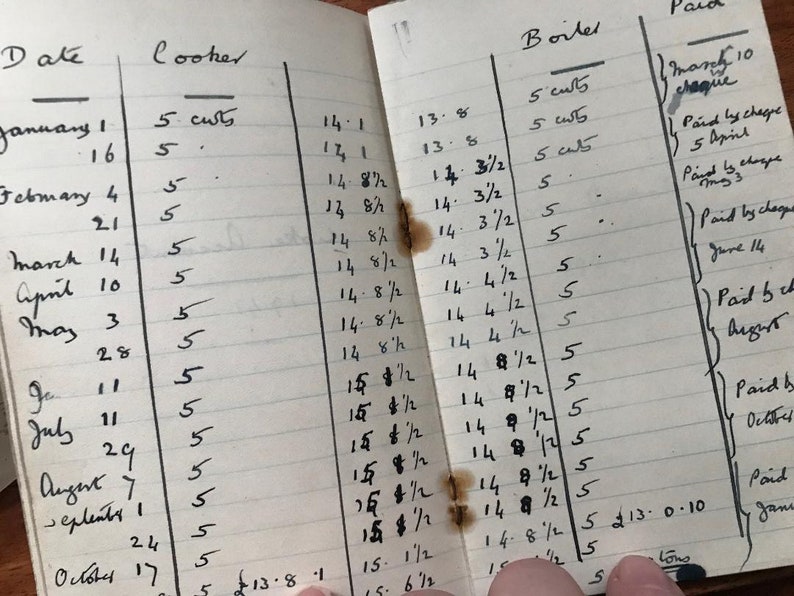 Date Cooker Boiler Paid
January 1 5 cwts 14.1 13.8 5 cwts March 10 cheque
16 5 " 14 1 13.8 5 cwts Paid by cheque 5 April
February 4 5 " 14.8½ 14.3½ 5 cwts Paid by cheque May 3
21 5 14 8½ 14.3½ 5 " Paid by cheque
March 14 5 14 8½ 14.3½ 5 " June 14
April 10 5 14.8½ 14 3½ 5 "
May 3 5 14.8½ 14.4½ 5 " Paid by
28 5 14.8½ 14 4½ 5 August
11 5 14 8½ 14 4½ 5
July 11 5 15 ½ 14 8½ 5 Paid by
29 5 15 ½ 14 ½ 5 October
August 7 5 15 ½ 14 ½ 5
1 5 15 ½ 14 ½ 5 Paid
24 5 15 ½ 14 ½ 5
October 17 5 15 ½ 14 ½ 5
5 £13.8.1 15.1½ 14.8½ 5 £13.0.10
15.6½ 5
5 tons